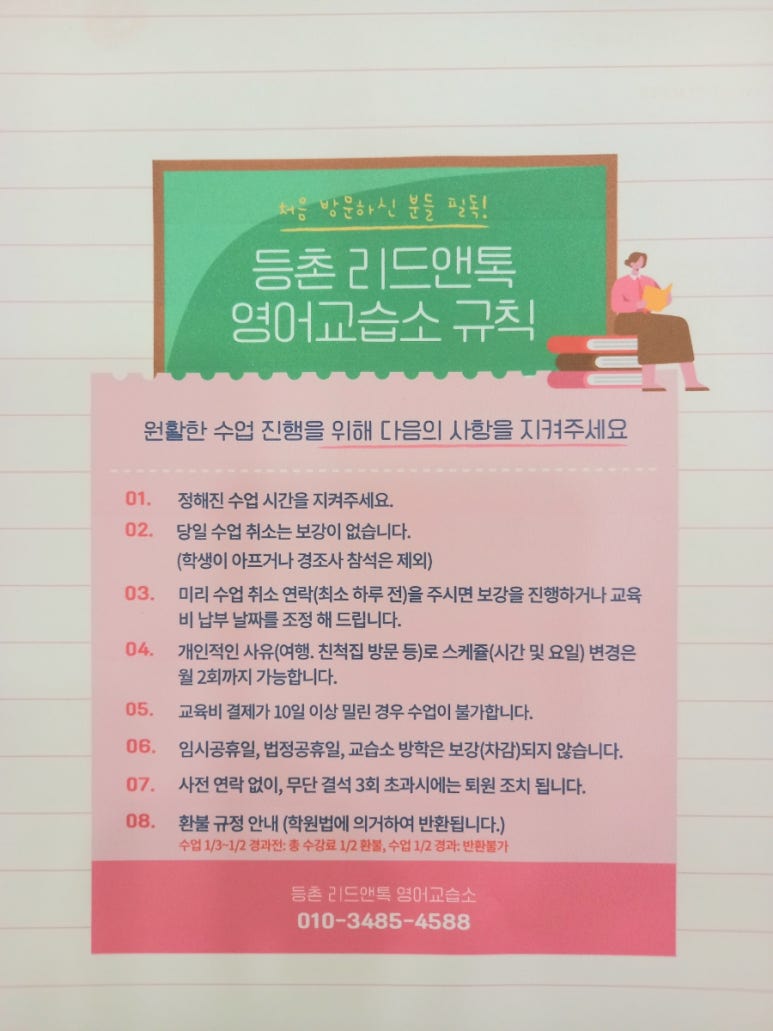 처음 방문하신 분들 필독!
등촌 리드앤톡
영어교습소 규칙
원활한 수업 진행을 위해 다음의 사항을 지켜주세요
01. 정해진 수업 시간을 지켜주세요.
02. 당일 수업 취소는 보강이 없습니다.
(학생이 아프거나 경조사 참석은 제외)
03. 미리 수업 취소 연락(최소 하루 전)을 주시면 보강을 진행하거나 교육
비 납부 날짜를 조정 해 드립니다.
04. 개인적인 사유(여행. 친척집 방문 등)로 스케쥴(시간 및 요일) 변경은
월 2회까지 가능합니다.
05. 교육비 결제가 10일 이상 밀린 경우 수업이 불가합니다.
06. 임시공휴일, 법정공휴일, 교습소 방학은 보강(차감)되지 않습니다.
07. 사전 연락 없이, 무단 결석 3회 초과시에는 퇴원 조치 됩니다.
08. 환불 규정 안내 (학원법에 의거하여 반환됩니다.)
수업 1/3~1/2 경과전: 총 수강료 1/2 환불, 수업 1/2 경과: 반환불가
등촌 리드앤톡 영어교습소
010-3485-4588